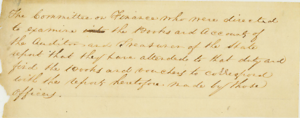 The Committee on Finance who were directed
to examine the Books and Accounts of
the Auditor and Treasurer of the State
report that they have attended to that duty and
find the Books and vouchers to correspond
with the reports heretofore made by those
officers.